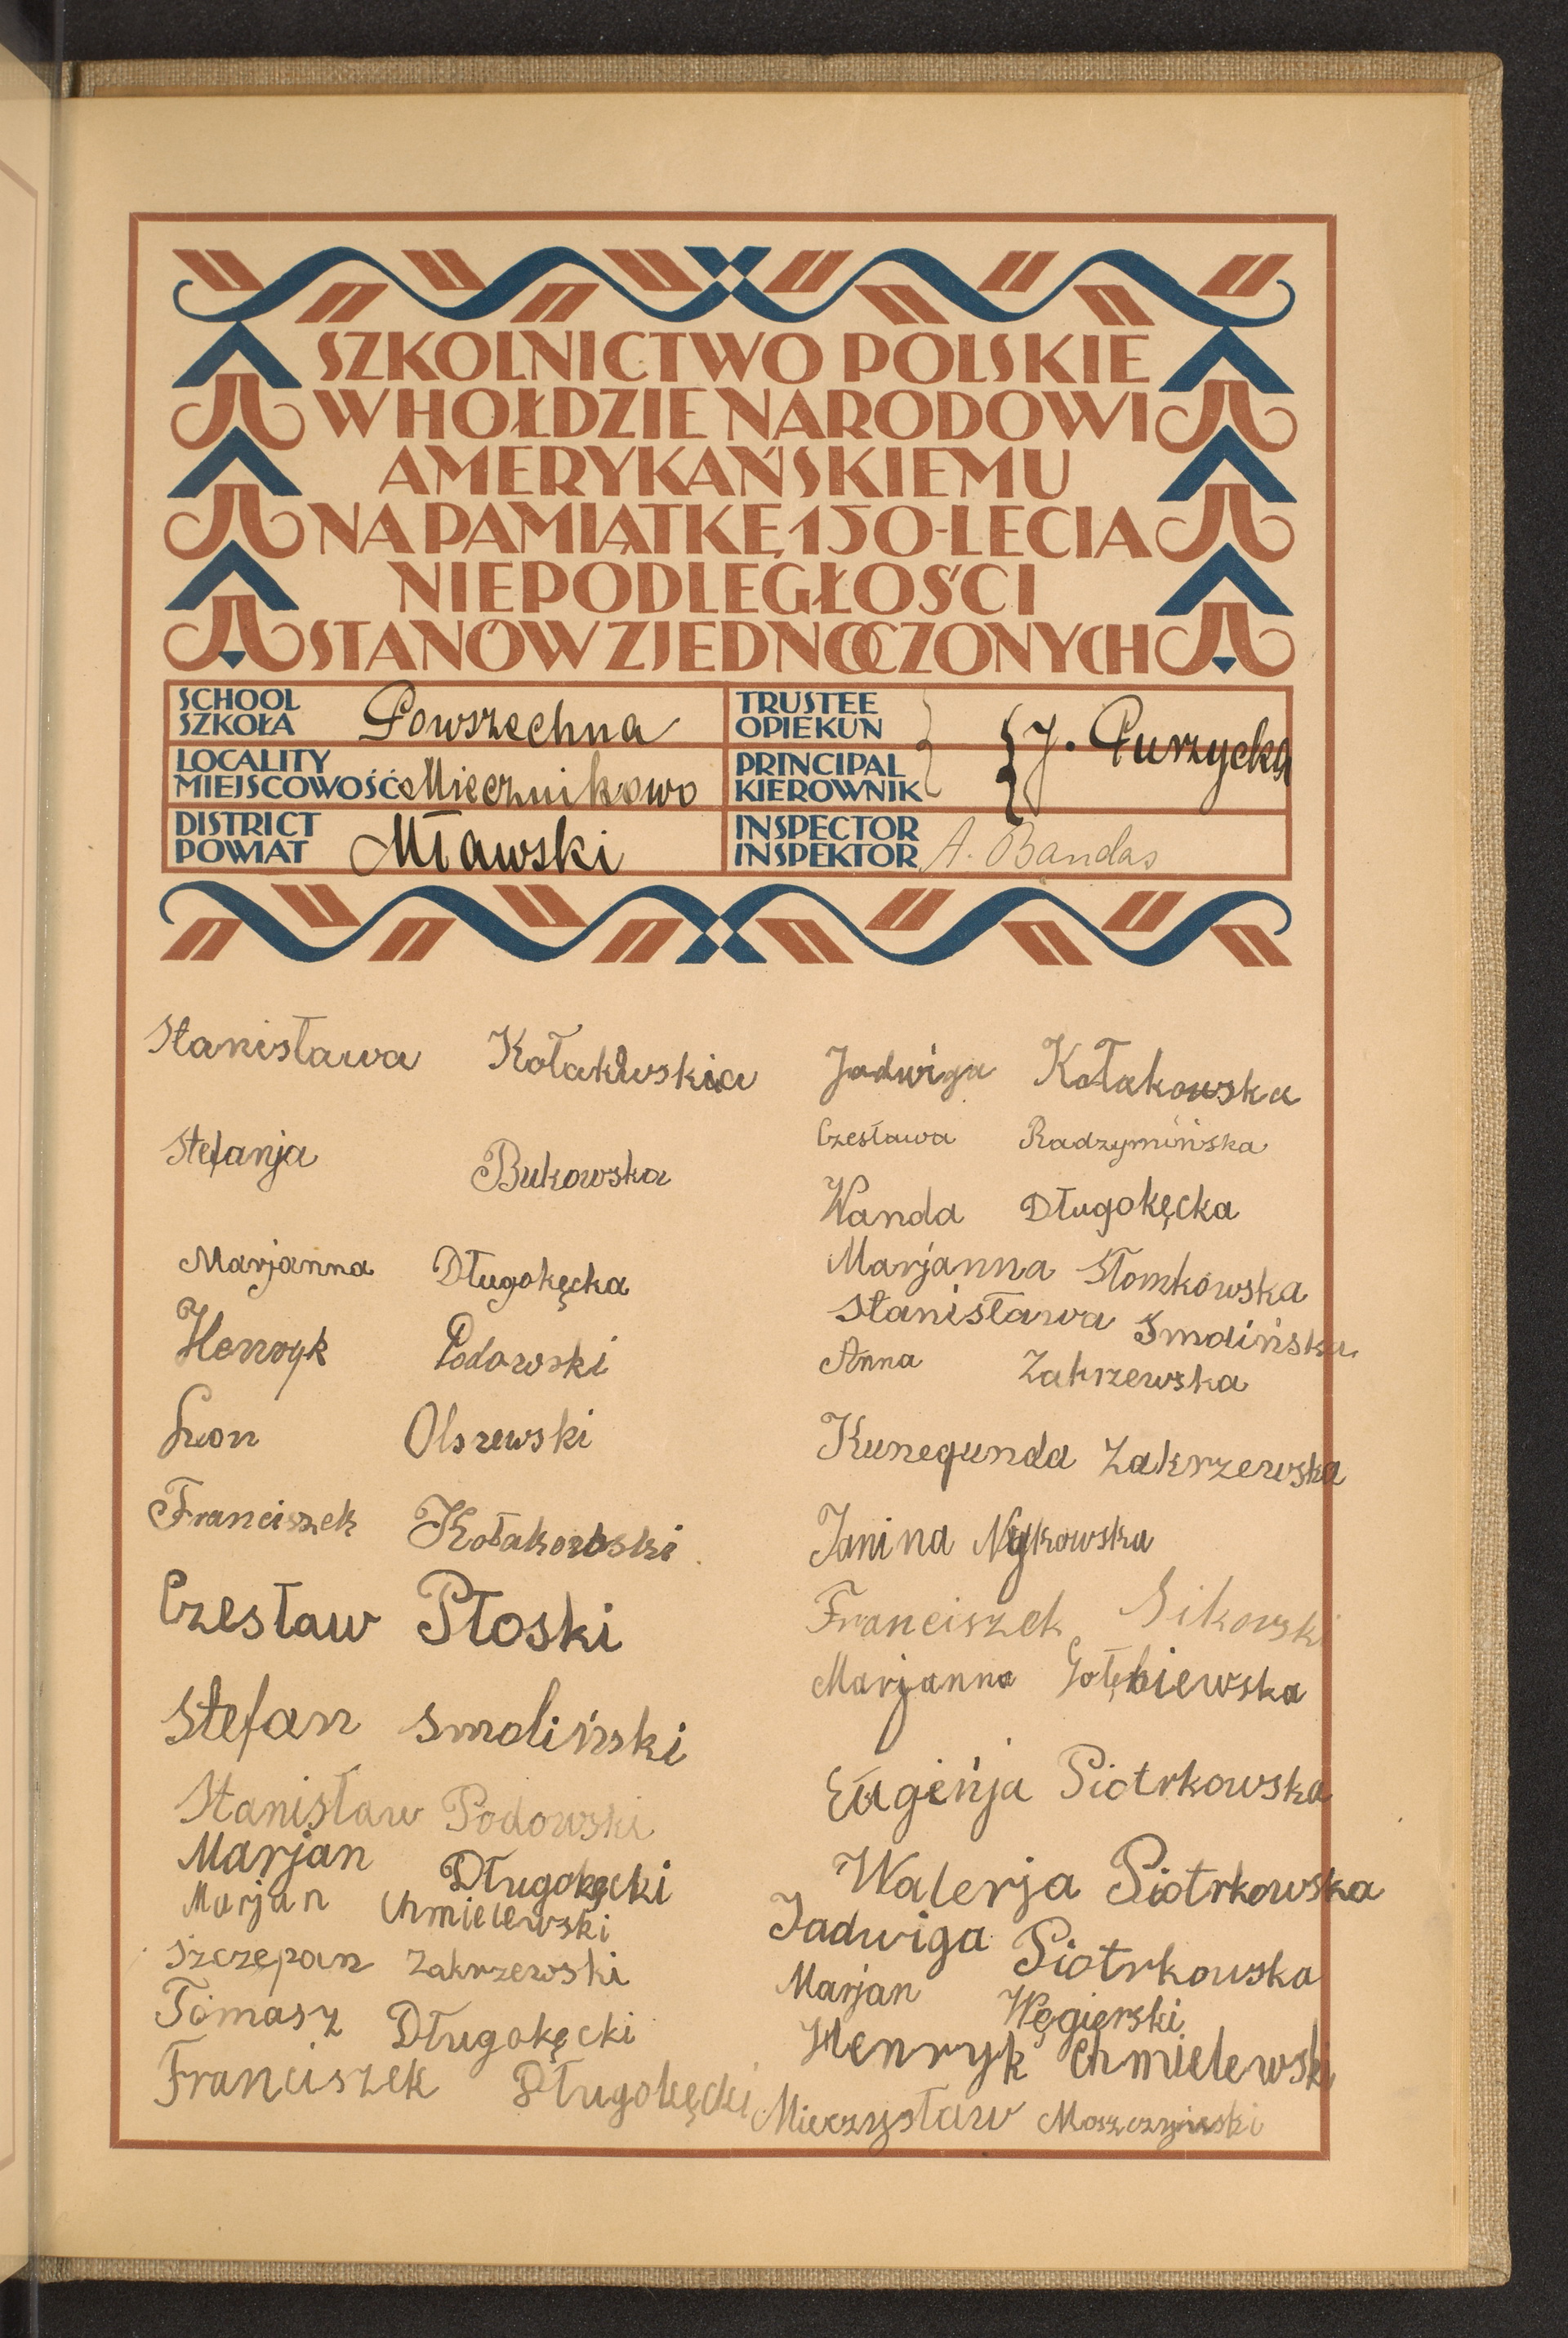 SZKOLNICTWO POLSKIE
W HOŁDZIE NARODOWI
AMERYKAŃSKIEMU
NA PAMIĄTKĘ 150-LECIA
NIEPODLEGŁOŚCI
STANÓW ZJEDNOCZONYCH
SCHOOL
SZKOŁA Powszechna
LOCALITY
MIEJSCOWOŚĆ Miecznikowo
DISTRICT
POWIAT Mławski
TRUSTEE
OPIEKUN
PRINCIPAL
KIEROWNIK
J. Purzycka
INSPECTOR
INSPEKTOR A. Bandas
Stanisława Kołakwskia
Stefanja Bukowska
Marjanna Długokęcka
Henryk Podowski
Leon Olszewski
Franciszek Kołakowski
Czesław Płoski
Stefan Smoliński
Stanisław Podowski
Marjan Długokęcki
Marjan Chmielewski
Szczepan Zakrzewski
Tomasz Długokęcki
Franciszek Długokęcki
Jadwiga Kołakowska
Czesława Radzymińska
Wanda Długokęcka
Marjanna Słomkowska
Stanisława Smolińska
Anna Zakrzewska
Kunegunda Zakrzewska
Janina Nykowska
Franciszek Sikorski
Marjanna Gołębiewska
Eugenja Piotrkowska
Walerja Piotrkowska
Jadwiga Piotrkowska
Marjan Węgierski
Henryk Chmielewski
Mieczysław Moszczyński